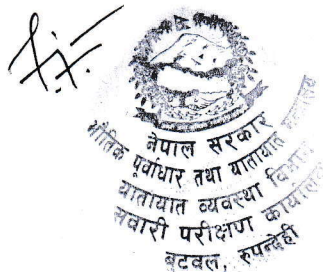 नेपाल सरकार
भौतिक पूर्वाधार तथा यातायात
यातायात व्यवस्था विभाग
सवारी परीक्षण कार्यालय
बुटवल, रुपन्देही